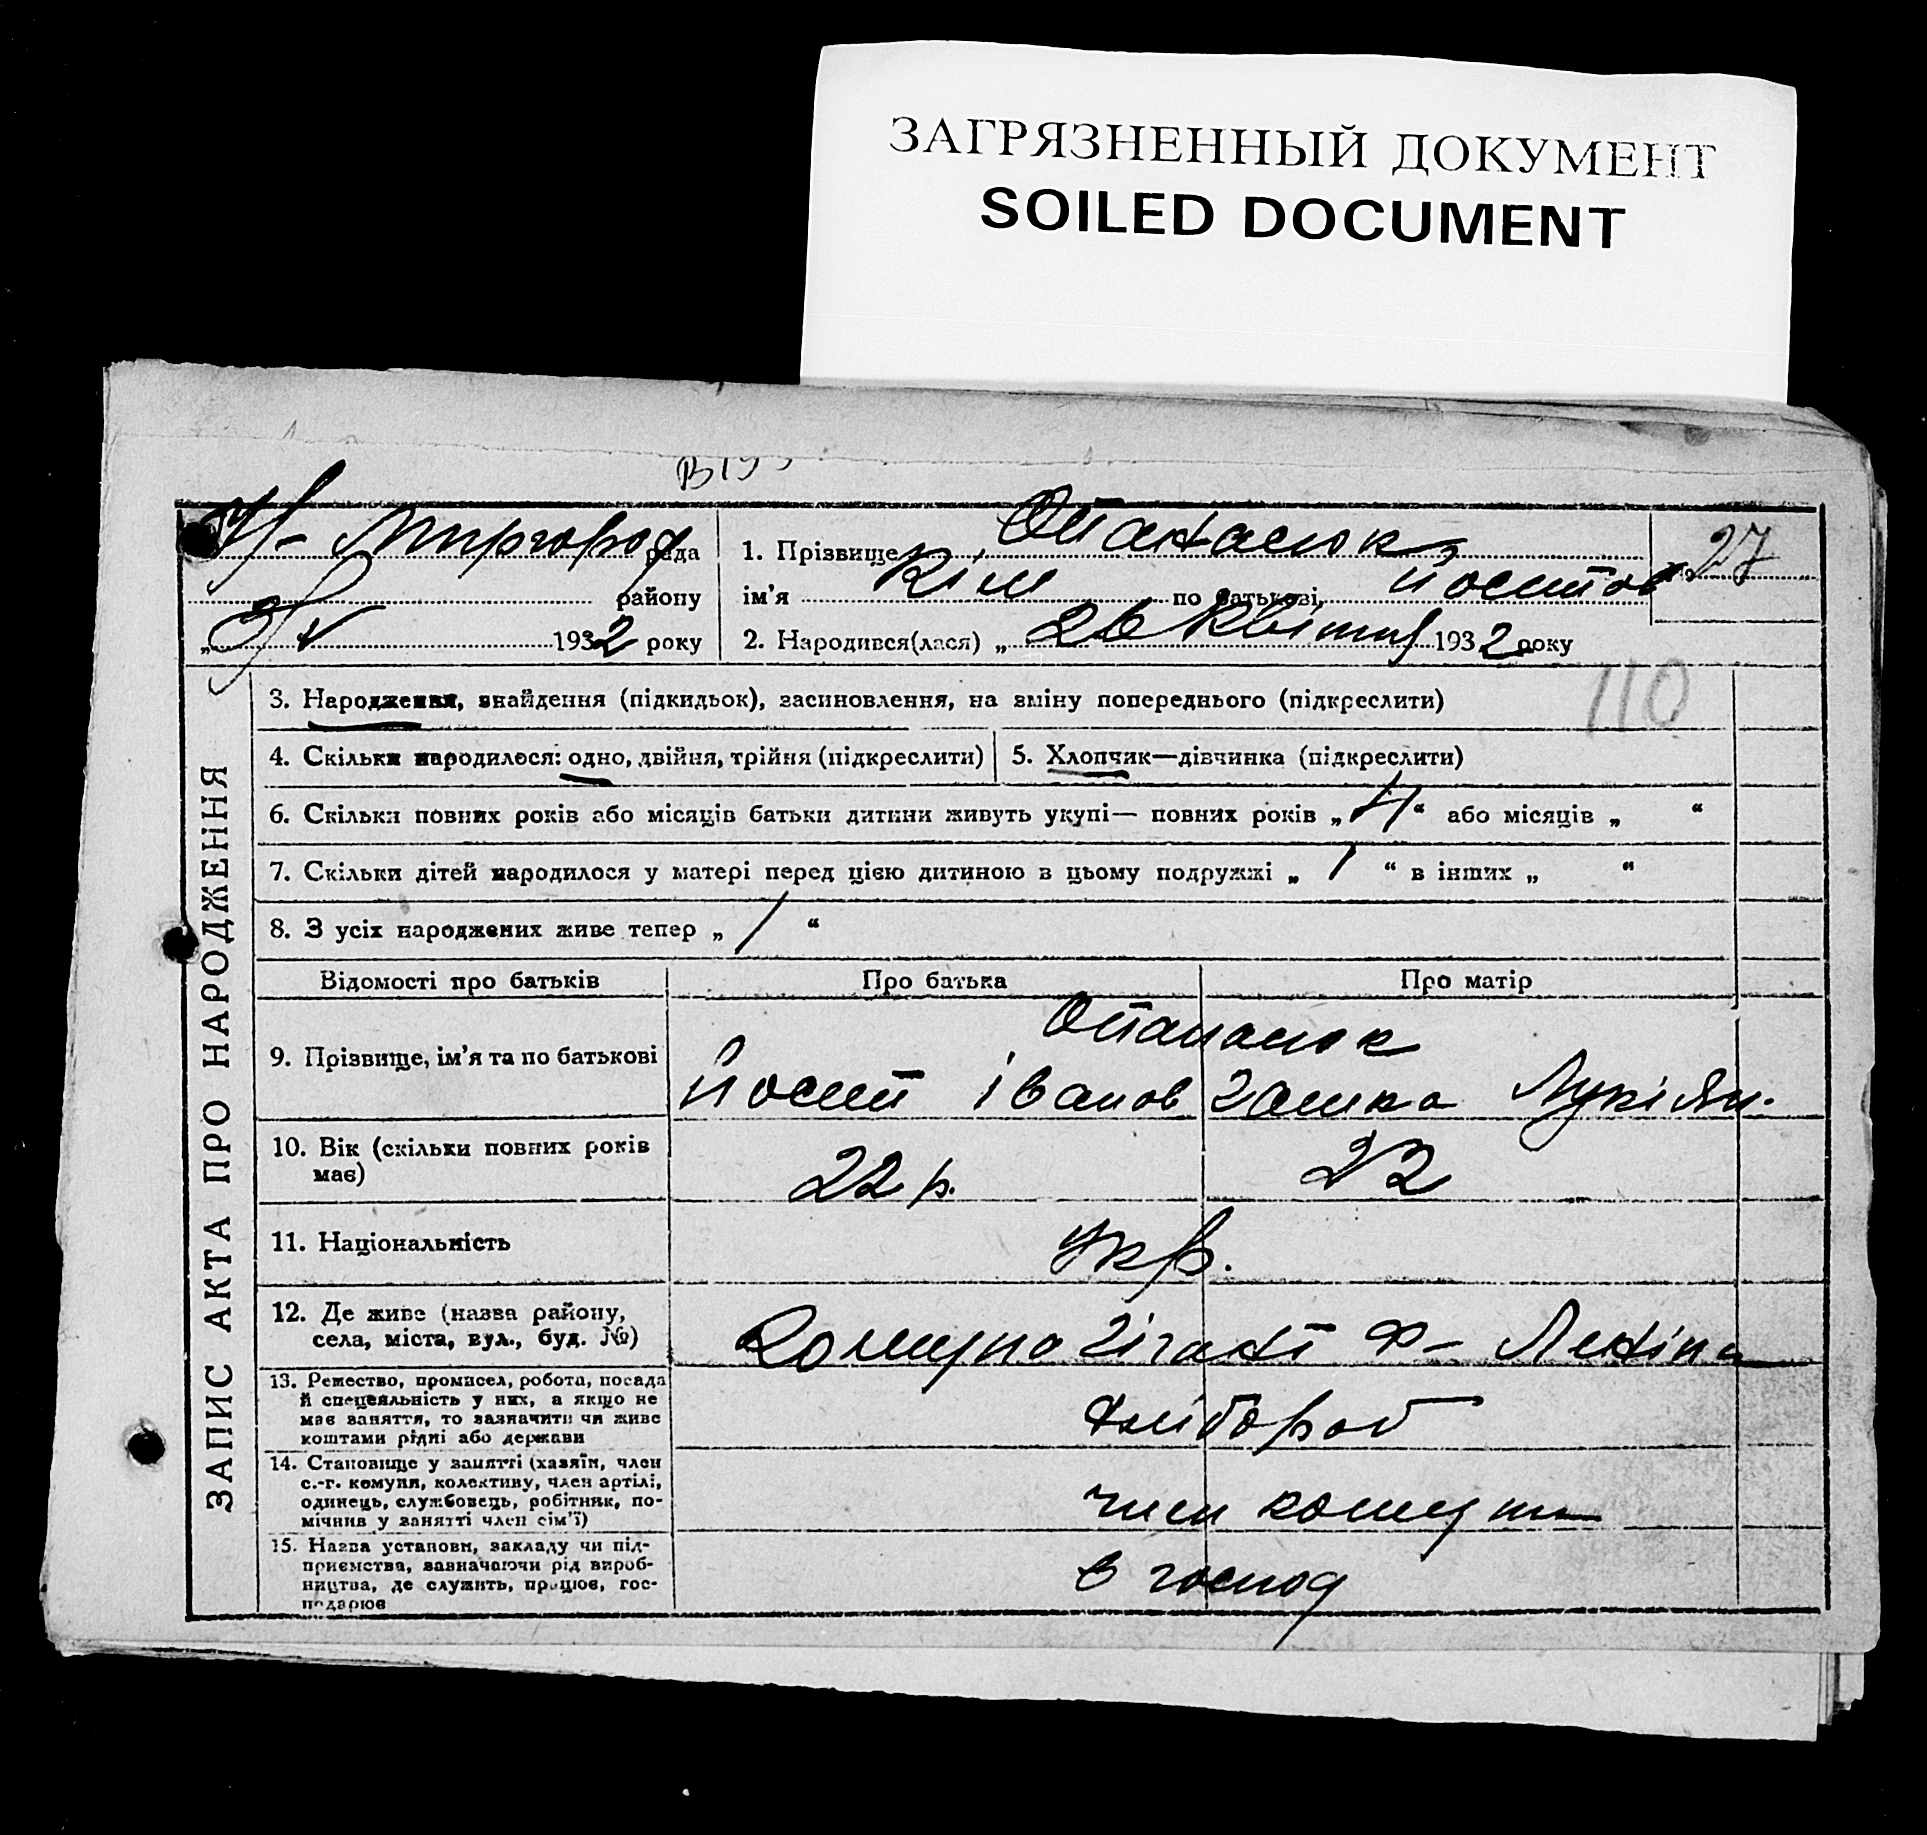 ЗАГРЯЗНЕННЫЙ ДОКУМЕНТ
SOILED DOCUMENT
Миргород рада
району
193 2 року
1. Прізвище Опанасюк
ім'я Кім по батькові Йосипов
27
2. Народився(лася) „ 26 Квітня 193 2 року
110
ЗАПИС АКТА ПРО НАРОДЖЕННЯ
3. Народження, знайдення (підкидьок), засиновлення, на зміну попереднього (підкреслити)
4. Скільки народилося: одно, двійня, трійня (підкреслити)
5. Хлопчик—дівчинка (підкреслити)
6. Скільки повних років або місяців батьки дитини живуть укупі— повних років „ 4 “ або місяців „ “
7. Скільки дітей народилося у матері перед цією дитиною в цьому подружжі „ 1 “ в інших „ “
8. З усіх народжених живе тепер „ 1 “
Відомості про батьків Про батька Про матір
Опанасюк
9. Прізвище, ім'я та по батькові Йосип Іванов Ганка Лукіян.
10. Вік (скільки повних років має) 22 р. 22
11. Національність Укр.
12. Де живе (назва району, села, міста, вул., буд. №) Комуна Гігант Леніна
13. Ремество, промисел, робота, посада
й спеціяльність у них, а якщо не
має заняття, то зазначити чи живе
коштами рідні або держави
хлібороб
14. Становище у занятті (хазяїн, член
с.-г. комуни, колективу, член артілі,
одинець, службовець, робітник, по-
мічнив у занятті член сім'ї)
член комуни
15. Назва установи, закладу чи під-
приємства, зазначаючи рід вироб-
ництва, де служить, працює, гос-
подарює
в господ